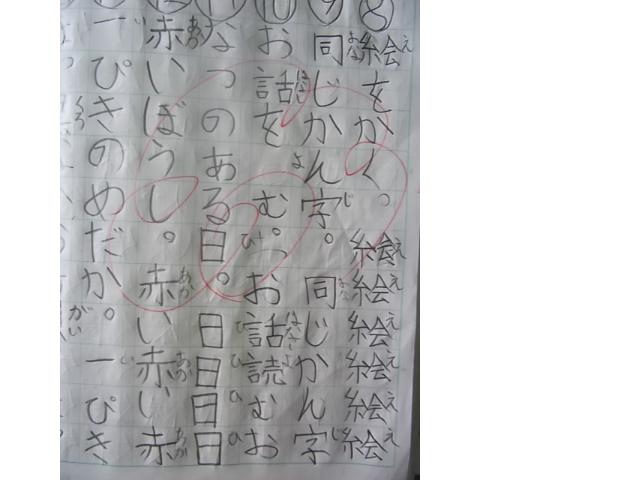 ⑧絵をかく。絵絵絵絵絵絵
⑨同じかん字。同じかん字
⑩お話をむ。お話読むお
なつのある日。日日日日
赤いぼうし。赤い赤い赤
一ぴきのめだか。一ぴき